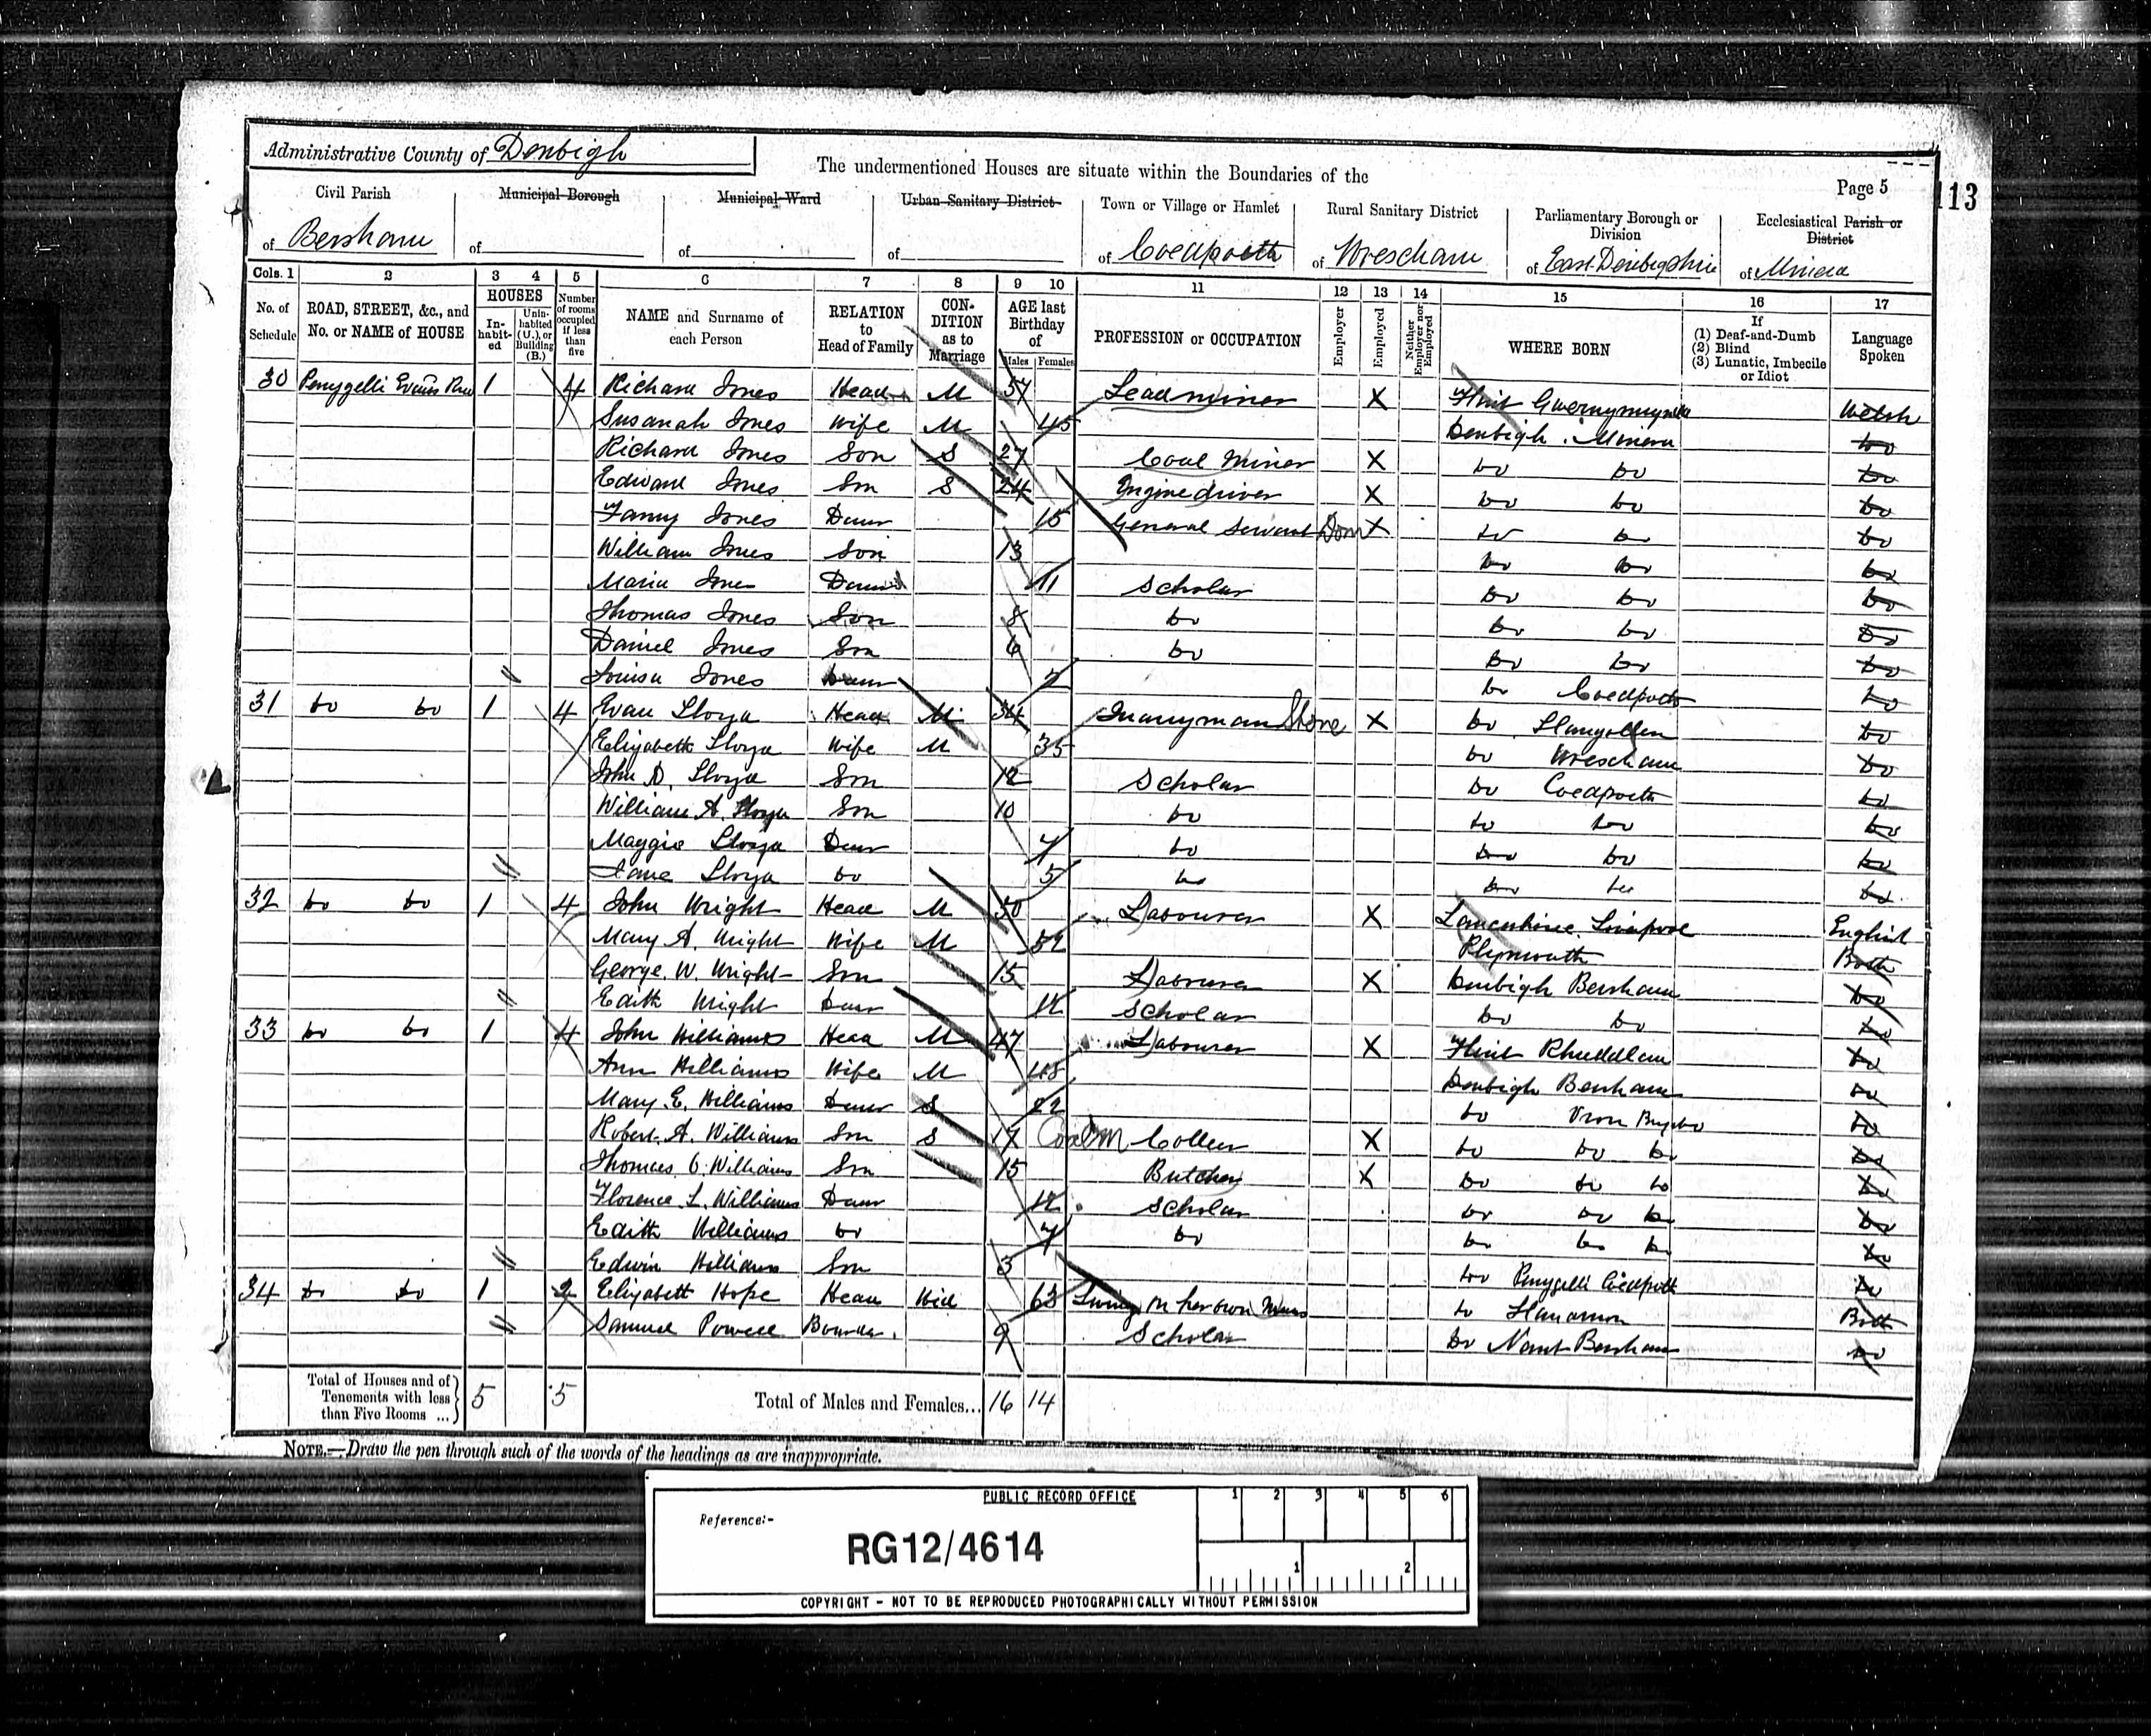 Administrative County of Denbigh
The undermentioned Houses are situate within the Boundaries of the
Page 5
113
Civil Parish of Bersham
Municipal Borough of
Municipal Ward of
Urban Sanitary District of
Town or Village or Hamlet of Coedpoeth
Rural Sanitary District of Wrexham
Parliamentary Borough or Division of East Denbigshire
Ecclesiastical Parish or District of Minera
Cols. 1 2 3 4 5 6 7 8 9 10 11 12 13 14 15 16 17
No. of Schedule
ROAD, STREET, &c., and No. or NAME of HOUSE
HOUSES
In-habit-ed
Unin-habited (U.), or Building (B.)
Number of rooms occupied if less than five
NAME and Surname of each Person
RELATION to Head of Family
CON-DITION as to Marriage
AGE last Birthday of
Males Females
PROFESSION or OCCUPATION
Employer
Employed
Neither Employer nor Employed
WHERE BORN
If (1) Deaf-and-Dumb (2) Blind (3) Lunatic, Imbecile or Idiot
Language Spoken
30 Penygelli Evans Row 1 4 Richard Jones Head M 57 Lead miner X Flint Welsh
Susanah Jones Wife M 45 Denbigh Minera do
Richard Jones Son S 27 Coal Miner X do do do
Edward Jones Son S 24 Engine driver X do do do
Fanny Jones Daur 15 General Servant Dom X do do do
William Jones Son 13 do do do
Maria Jones Daur 11 Scholar do do do
Thomas Jones Son 8 do do do do
Daniel Jones Son 6 do do do do
Louisa Jones Daur 2 do Coedpoeth do
31 do do 1 4 Evan Lloyd Head M 34 Quarryman Stone X do Llangollen do
Elizabeth Lloyd Wife M 35 do Wrexham do
John D. Lloyd Son 12 Scholar do Coedpoeth do
William A. Lloyd Son 10 do do do do
Maggie Lloyd Daur 7 do do do do
Jane Lloyd do 5 do do do do
32 do do 1 4 John Wright Head M 50 Labourer X Lancashire Liverpool English
Mary A. Wright Wife M 52 Plymouth Both
George W. Wright Son 15 Labourer X Denbigh Bersham do
Edith Wright Daur 12 Scholar do do do
33 do do 1 4 John Williams Head M 47 Labourer X Flint Rhuddlan do
Ann Williams Wife M 48 Denbigh Bersham do
Mary E. Williams Daur S 22 do Vron do
Robert A. Williams Son S 17 Coal M Collier X do do do do
Thomas C. Williams Son 15 Butcher X do do do do
Florence L. Williams Daur 12 Scholar do do do do
Edith Williams do 7 do do do do do
Edwin Williams Son 3 do Penygelli Coedpoeth do
34 do do 1 2 Elizabeth Hope Head Wid 63 Living on her own Means do Llanarmon Both
Samuel Powell Boarder 9 Scholar do Nant Bersham do
Total of Houses and of Tenements with less than Five Rooms ... 5 5
Total of Males and Females... 16 14
NOTE.—Draw the pen through such of the words of the headings as are inappropriate.
PUBLIC RECORD OFFICE
1 2 3 4 5 6
Reference:-
RG12/4614
1 2
COPYRIGHT - NOT TO BE REPRODUCED PHOTOGRAPHICALLY WITHOUT PERMISSION